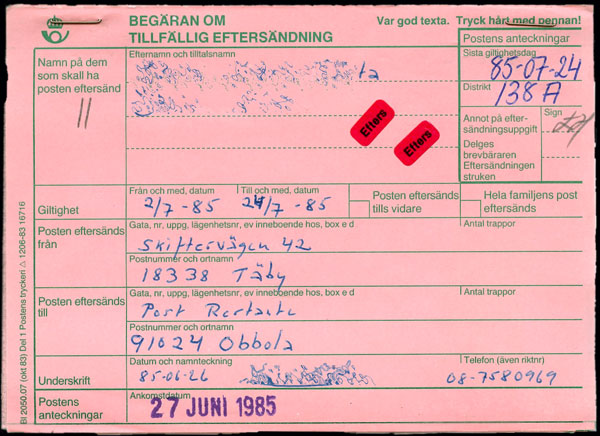 BEGÄRAN OM
TILLFÄLLIG EFTERSÄNDNING
Var god texta. Tryck hårt med pennan!
Postens anteckningar
Sista giltighetsdag
85-07-24
Distrikt
138 A
Annot på efter-
sändningsuppgift
Sign
Delges
brevbäraren
Eftersändningen
struken
Namn på dem
som skall ha
posten eftersänd
11
Efternamn och tilltalsnamn
ta
Efters
Efters
Giltighet
Från och med, datum
2/7 -85
Till och med, datum
24/7 -85
Posten eftersänds
tills vidare
Hela familjens post
eftersänds
Posten eftersänds
från
Gata, nr, uppg, lägenhetsnr, ev inneboende hos, box e d
Antal trappor
Skiftervägen 42
Postnummer och ortnamn
18338 Täby
Posten eftersänds
till
Gata, nr, uppg, lägenhetsnr, ev inneboende hos, box e d
Antal trappor
Post Restante
Postnummer och ortnamn
91024 Obbola
Underskrift
Datum och namnteckning
85-06-26
Telefon (även riktnr)
08-7580969
Postens
anteckningar
Ankomstdatum
27 JUNI 1985
Bl 2050.07 (okt 83) Del 1 Postens tryckeri △ 1206-83 16716